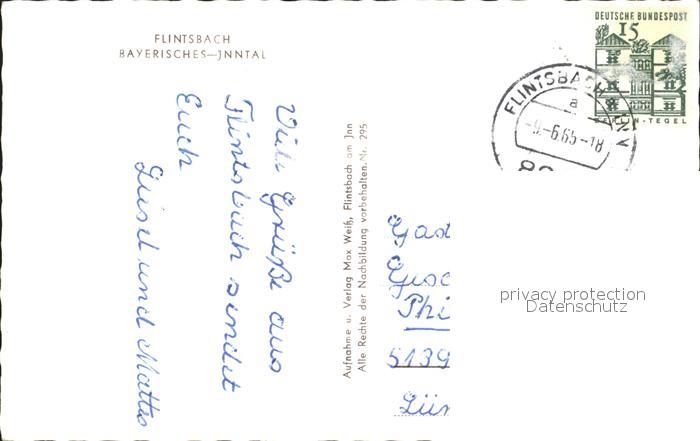 FLINTSBACH
BAYERISCHES—JNNTAL
Viele Grüße aus
Flintsbach sendet
Euch
Gisel und Mattes
Aufnahme u. Verlag Max Weiß, Flintsbach am Jnn
Alle Rechte der Nachbildung vorbehalten. Nr. 295
DEUTSCHE BUNDESPOST
15
BERLIN-TEGEL
FLINTSBACH
a
-9.-6.65-18
Gast
Phi
5139
privacy protection
Datenschutz